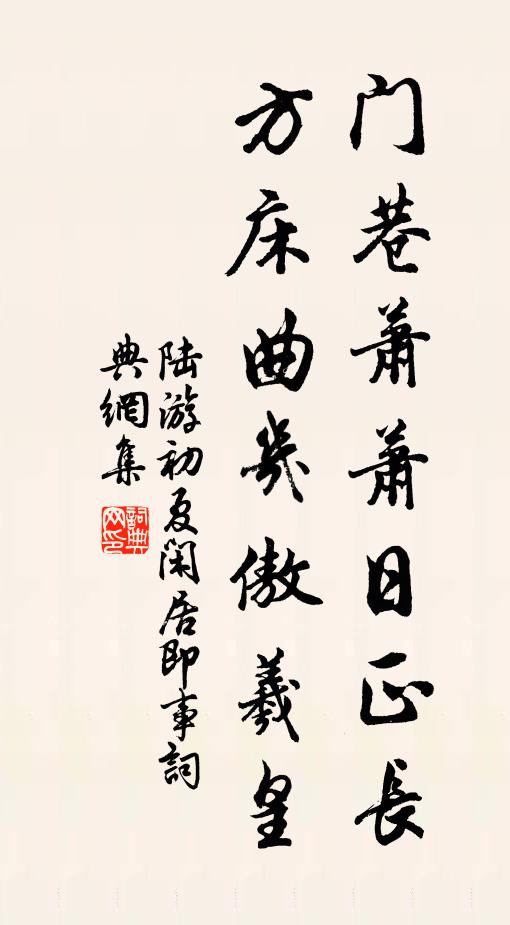 门巷蕭蕭日正長
方床曲幾傲羲皇
陆游初夏闲居即事詞
典網集
詞典
网印